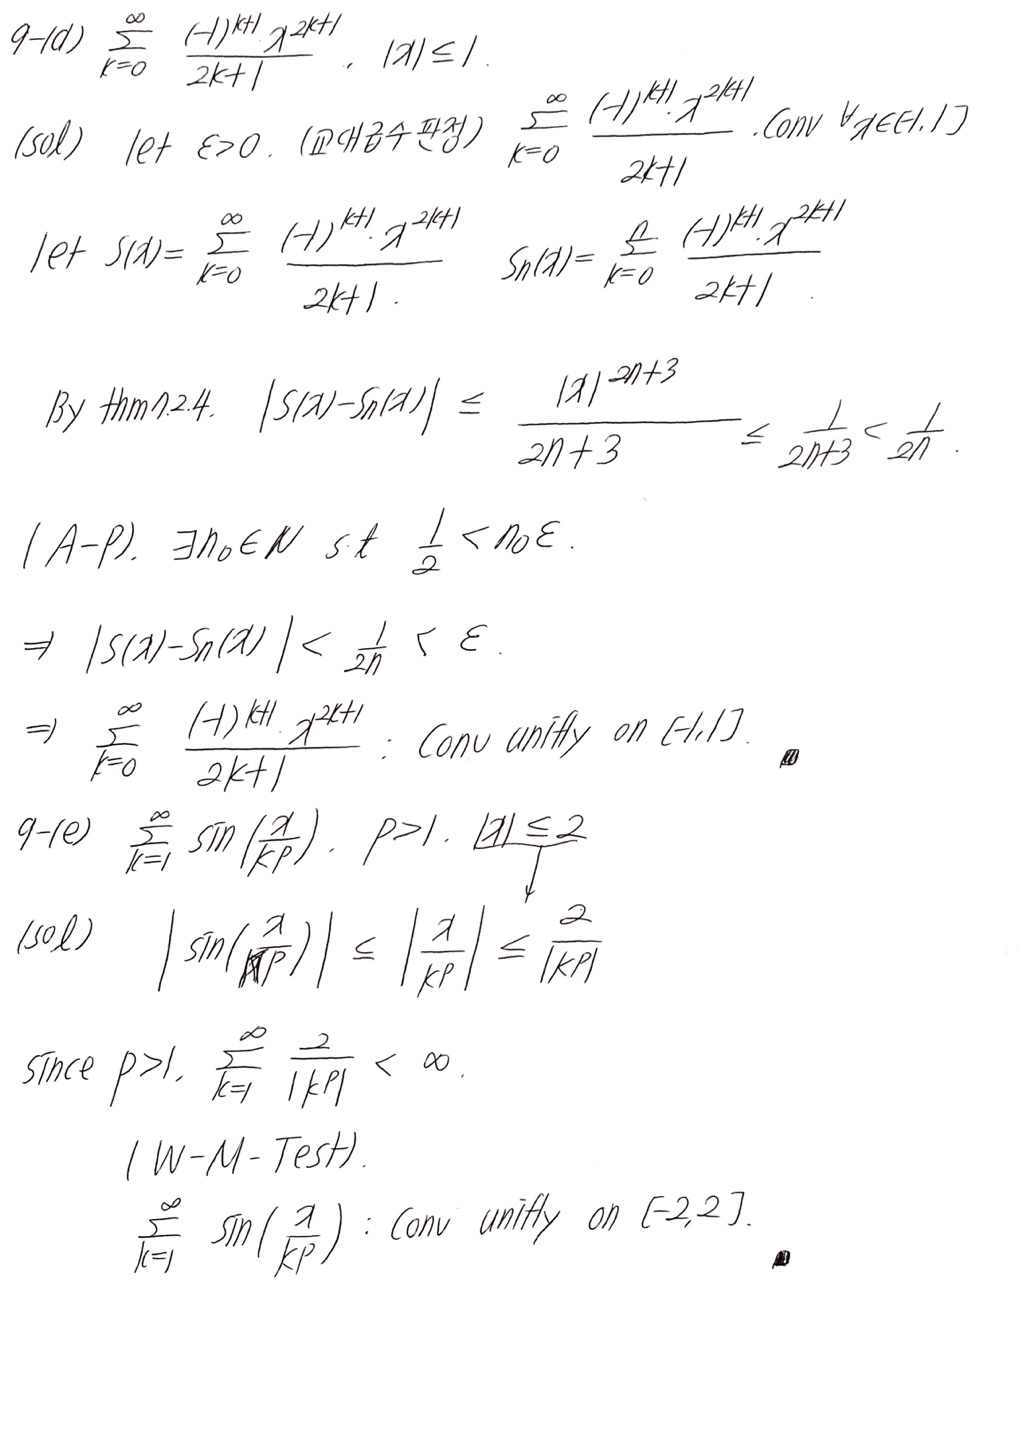 9-(d) ∞Σk=0 (-1)^{k+1} x^{2k+1} / 2k+1 . |x| ≤ 1.
(sol) let ε>0. (교대급수 판정) ∞Σk=0 (-1)^{k+1}· x^{2k+1} / 2k+1 . Conv ∀x∈[-1,1]
let S(x)= ∞Σk=0 (-1)^{k+1}· x^{2k+1} / 2k+1 . Sn(x)= nΣk=0 (-1)^{k+1}· x^{2k+1} / 2k+1 .
By thm 7.2.4. |S(x)-Sn(x)| ≤ |x|^{2n+3} / 2n+3 ≤ 1/2n+3 < 1/2n .
(A-P). ∃n₀∈N s.t 1/2 < n₀ε.
⇒ |S(x)-Sn(x)| < 1/2n < ε.
⇒ ∞Σk=0 (-1)^{k+1}· x^{2k+1} / 2k+1 : Conv unifly on [-1,1].
9-(e) ∞Σk=1 sin(x/k^p). p>1. |x| ≤ 2
(sol) |sin(x/k^p)| ≤ |x/k^p| ≤ 2/|k^p|
since p>1, ∞Σk=1 2/|k^p| < ∞.
(W-M-Test).
∞Σk=1 sin(x/k^p) : Conv unifly on [-2,2].